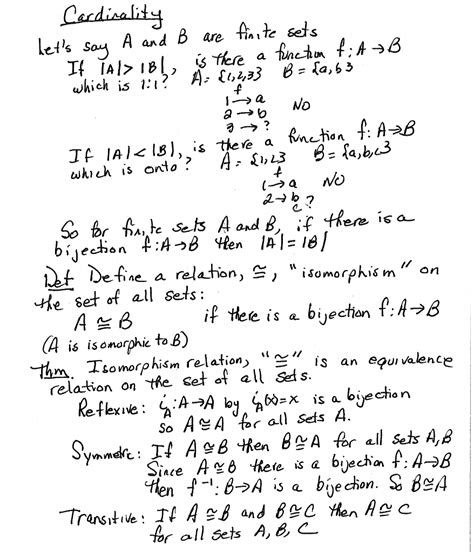 Cardinality
Let's say A and B are finite sets
If |A|>|B|, is there a function f: A→B
which is 1:1? A={1,2,3} B={a,b}
f
1→a
2→b NO
3→?
If |A|<|B|, is there a function f: A→B
which is onto? A={1,2} B={a,b,c}
f
1→a NO
2→b
c?
So for finite sets A and B, if there is a
bijection f:A→B then |A|=|B|
Def Define a relation, ≅, "isomorphism" on
the set of all sets:
A≅B if there is a bijection f:A→B
(A is isomorphic to B)
Thm. Isomorphism relation, "≅" is an equivalence
relation on the set of all sets.
Reflexive: i_A:A→A by i_A(x)=x is a bijection
so A≅A for all sets A.
Symmetric: If A≅B then B≅A for all sets A,B
Since A≅B there is a bijection f:A→B
then f⁻¹:B→A is a bijection. So B≅A
Transitive: If A≅B and B≅C then A≅C
for all sets A, B, C